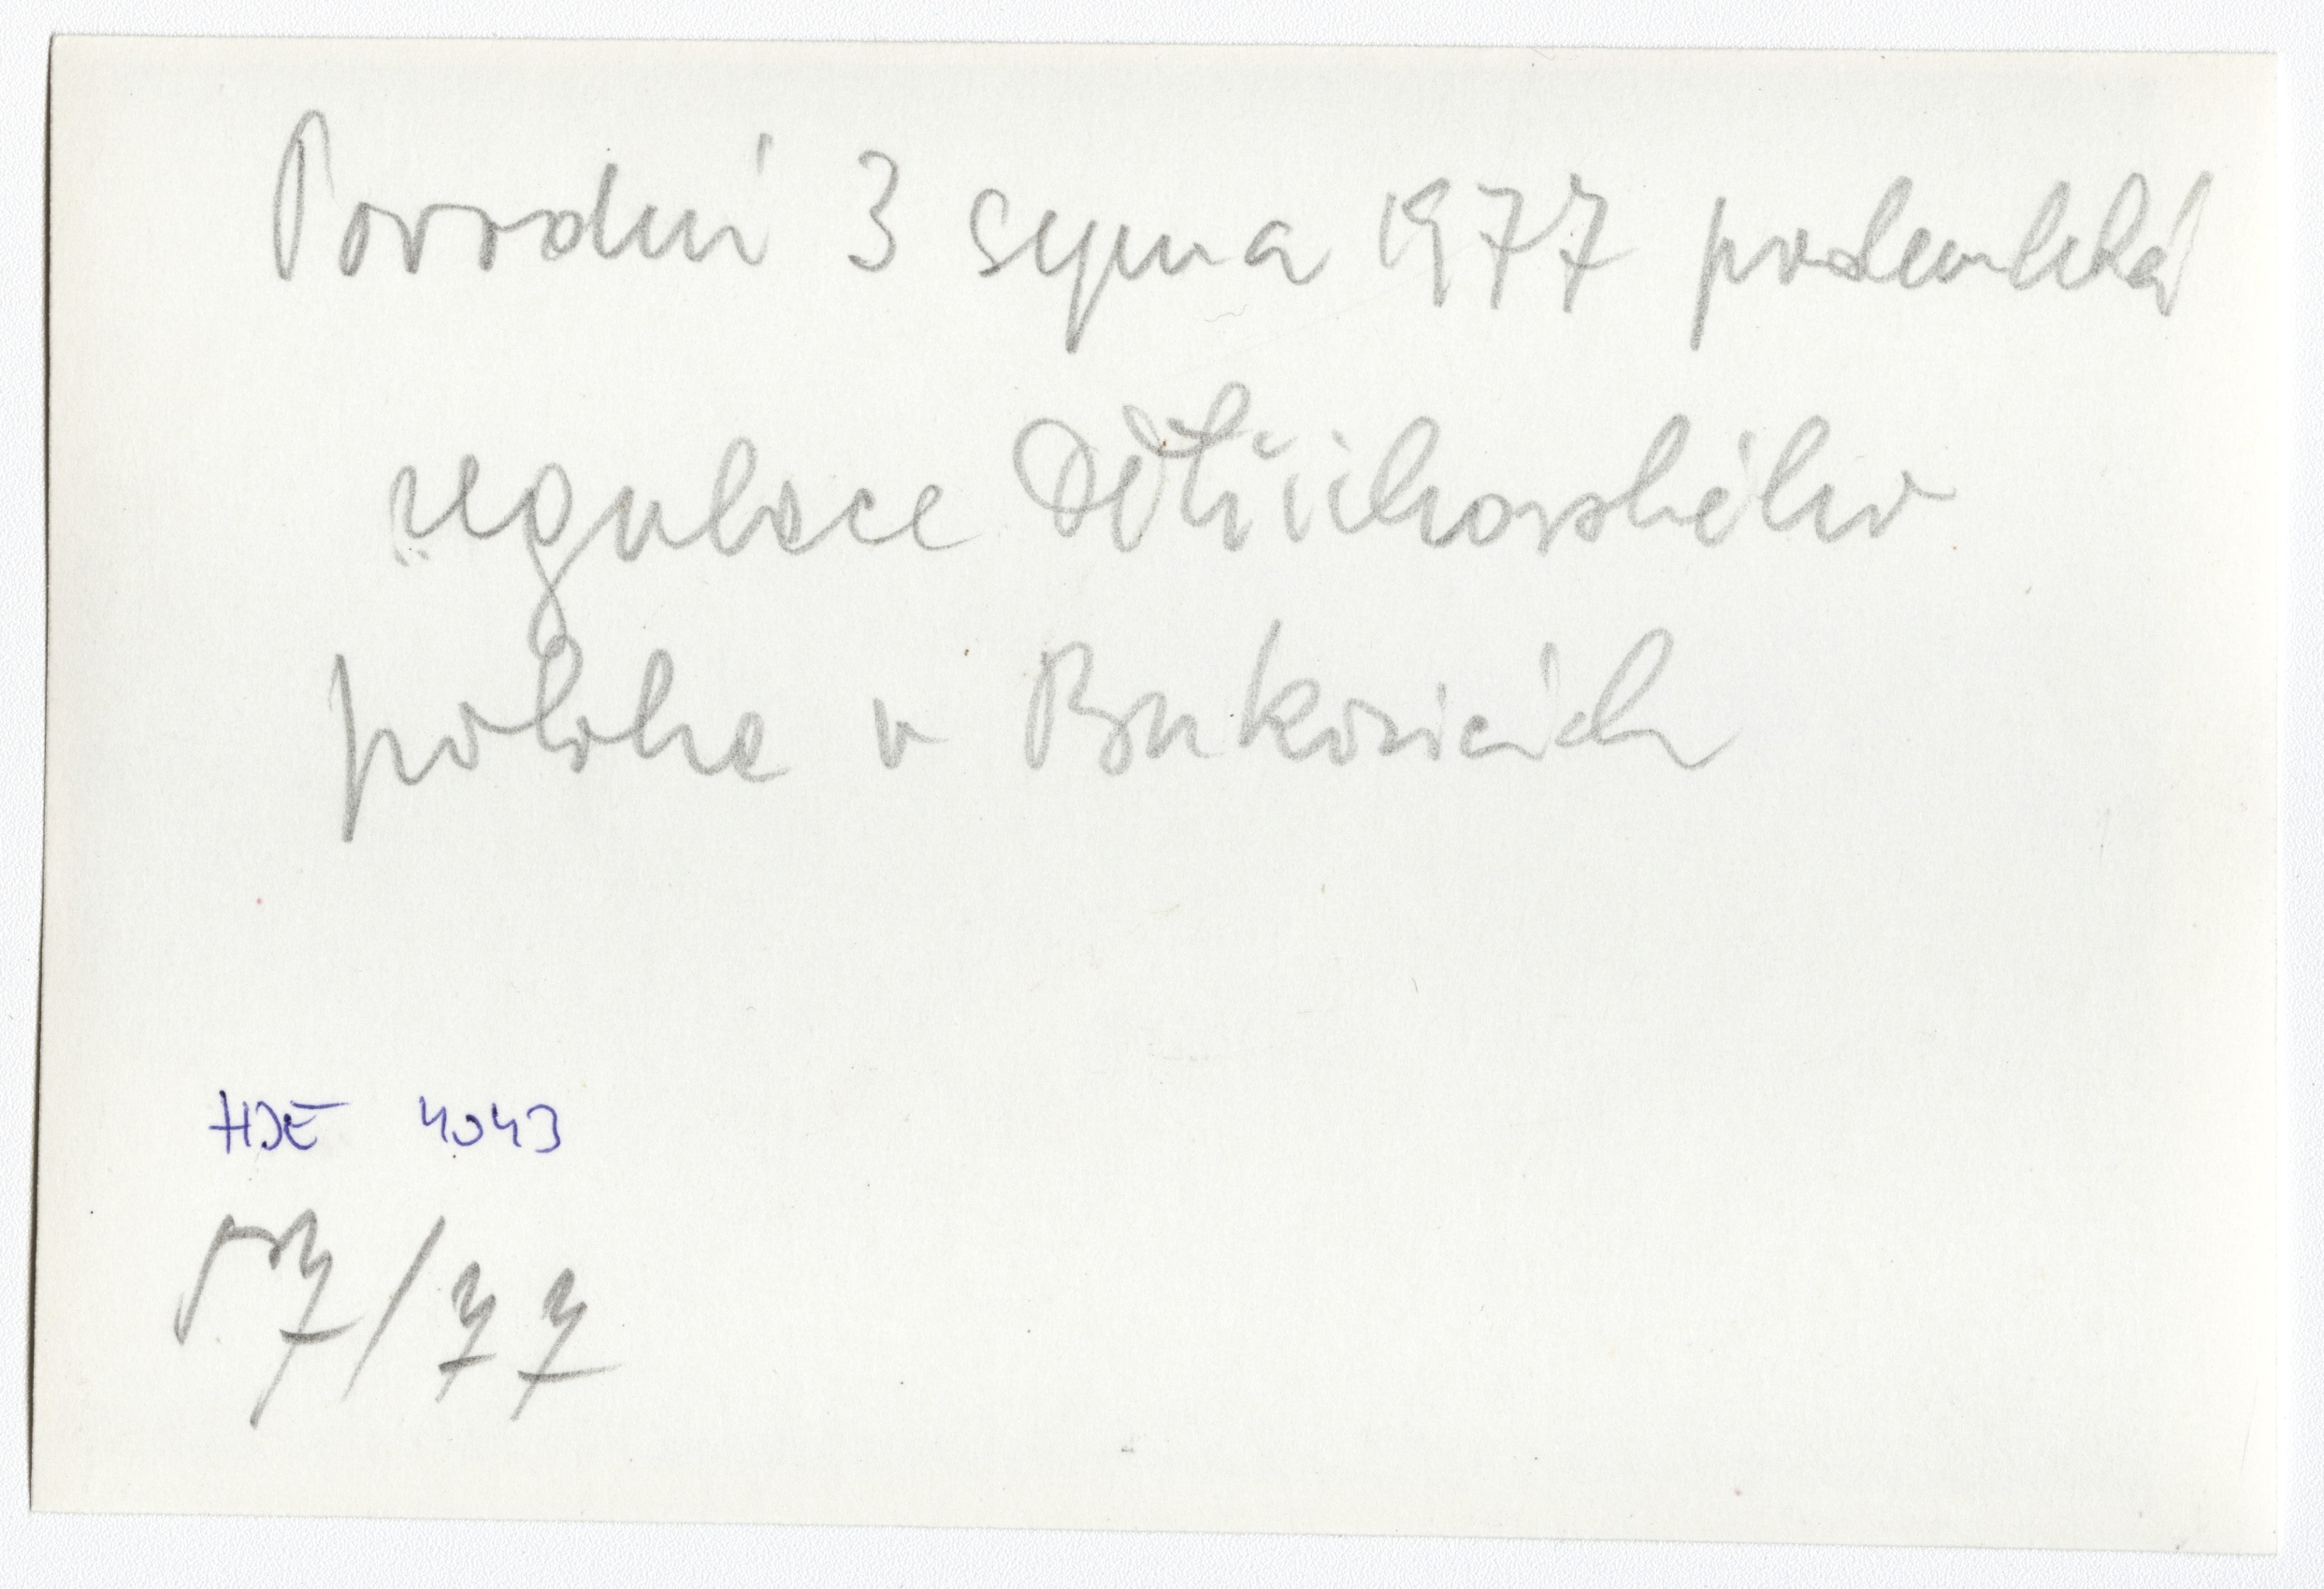 Povodní 3 srpna 1977 podemletá
regulace Dětřichovského
potoka v Bukovicích
HJE 4043
57/77